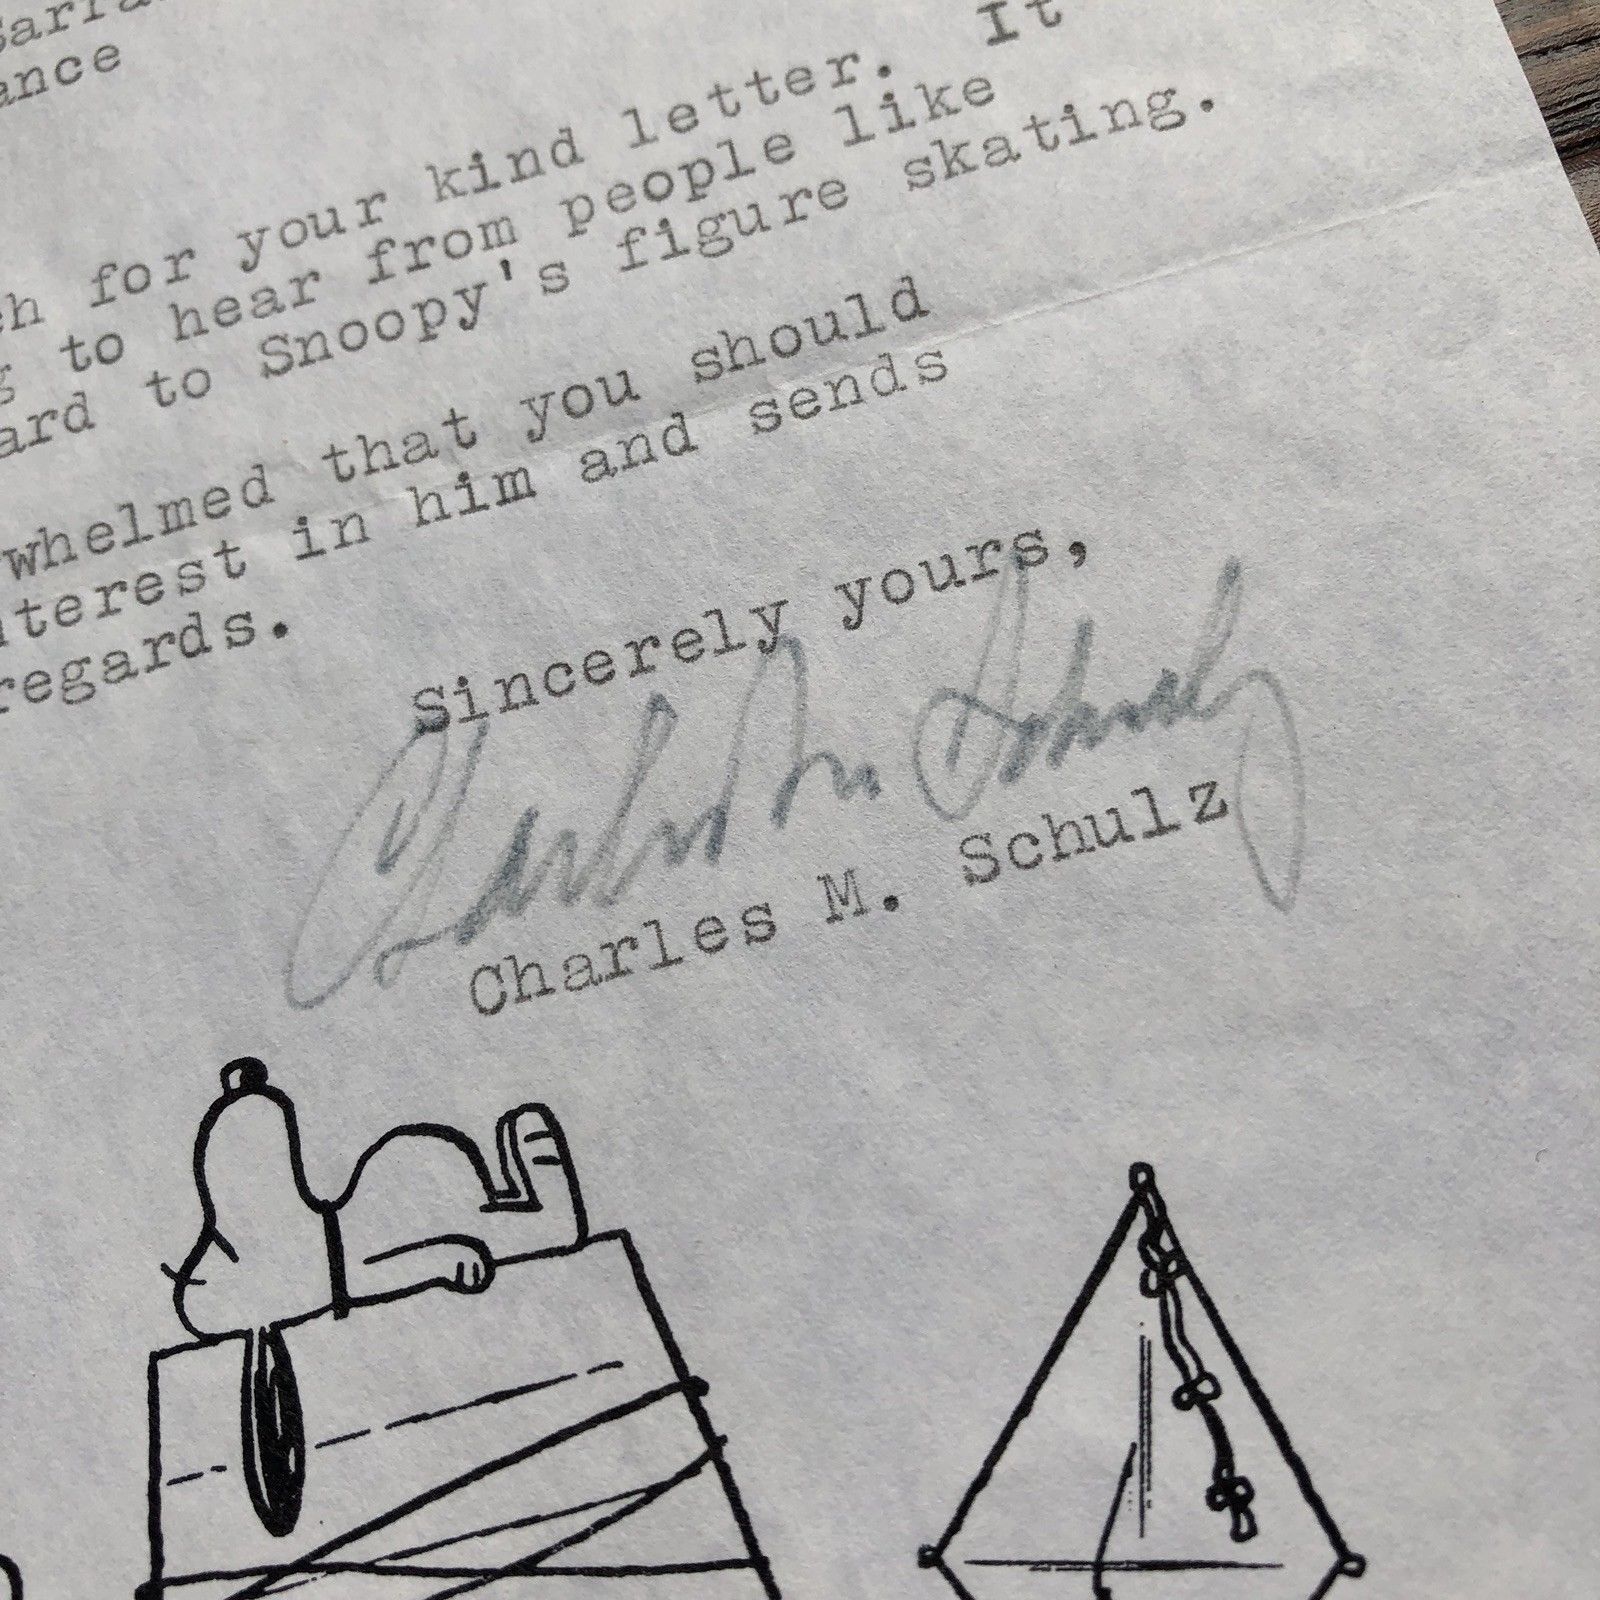 ance
for your kind letter. It
to hear from people like
to Snoopy's figure skating.
whelmed that you should
terest in him and sends
regards.
Sincerely yours,
Charles M Schulz
Charles M. Schulz